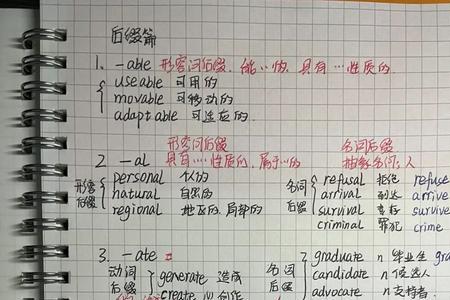 后缀篇
1. -able 形容词后缀. 能…的, 具有…性质的.
useable 可用的
movable 可移动的
adaptable 可适应的.
形容词后缀 名词后缀
2 -al 具有…性质的, 属于…的 抽象名词; 人
形容词后缀 personal 私人的 名词后缀 refusal 拒绝 refuse
natural 自然的 arrival 到达 arrive
regional 地区的, 局部的 survival 幸存 survive
criminal 罪犯 crime
3. -ate
动词后缀 generate 造成 名词后缀 graduate n 毕业生 gra
create 创作 candidate n 候选人
advocate n 支持者